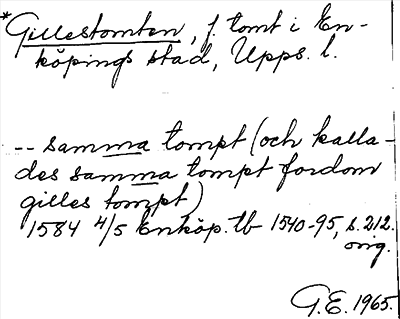 *Gillestomten, f. tomt i En-
köpings stad, Upps. l.
-- samma tompt (och kalla-
des samma tompt fordom
gilles tompt)
1584 4/5 Enköp. tb 1540-95, s. 212.
orig.
G.E. 1965.